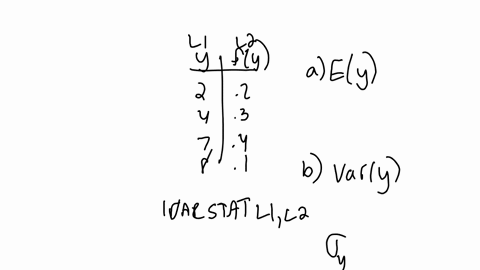 L1 L2
y f(y)
a) E(y)
2 .2
4 .3
7 .4
8 .1
b) Var(y)
1VARSTAT L1, L2
σy